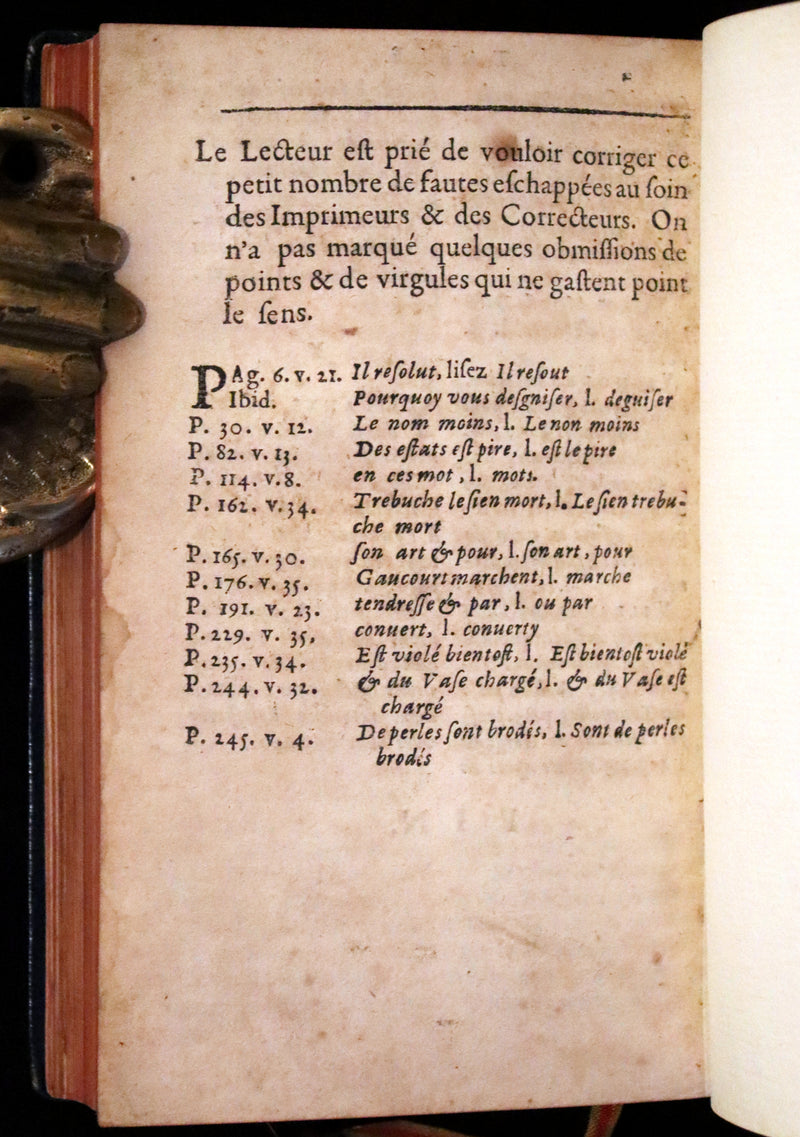 Le Lecteur eſt prié de vouloir corriger ce
petit nombre de fautes eſchappées au ſoin
des Imprimeurs & des Correcteurs. On
n'a pas marqué quelques obmiſſions de
points & de virgules qui ne gaſtent point
le ſens.
PAg. 6. v. 21. Il reſolut, liſez Il reſout
Ibid. Pourquoy vous deſgniſer, l. deguiſer
P. 30. v. 12. Le nom moins, l. Le non moins
P. 82. v. 13. Des eſtats eſt pire, l. eſt le pire
P. 114. v. 8. en ces mot, l. mots.
P. 162. v. 34. Trebuche le ſien mort, l. Le ſien trebu-
che mort
P. 165. v. 30. ſon art & pour, l. ſon art, pour
P. 176. v. 35. Gaucourt marchent, l. marche
P. 191. v. 23. tendreſſe & par, l. ou par
P. 229. v. 35, conuert, l. conuerty
P. 235. v. 34. Eſt violé bientoſt, l. Eſt bientoſt violé
P. 244. v. 32. & du Vaſe chargé, l. & du Vaſe eſt
chargé
P. 245. v. 4. De perles ſont brodés, l. Sont de perles
brodés